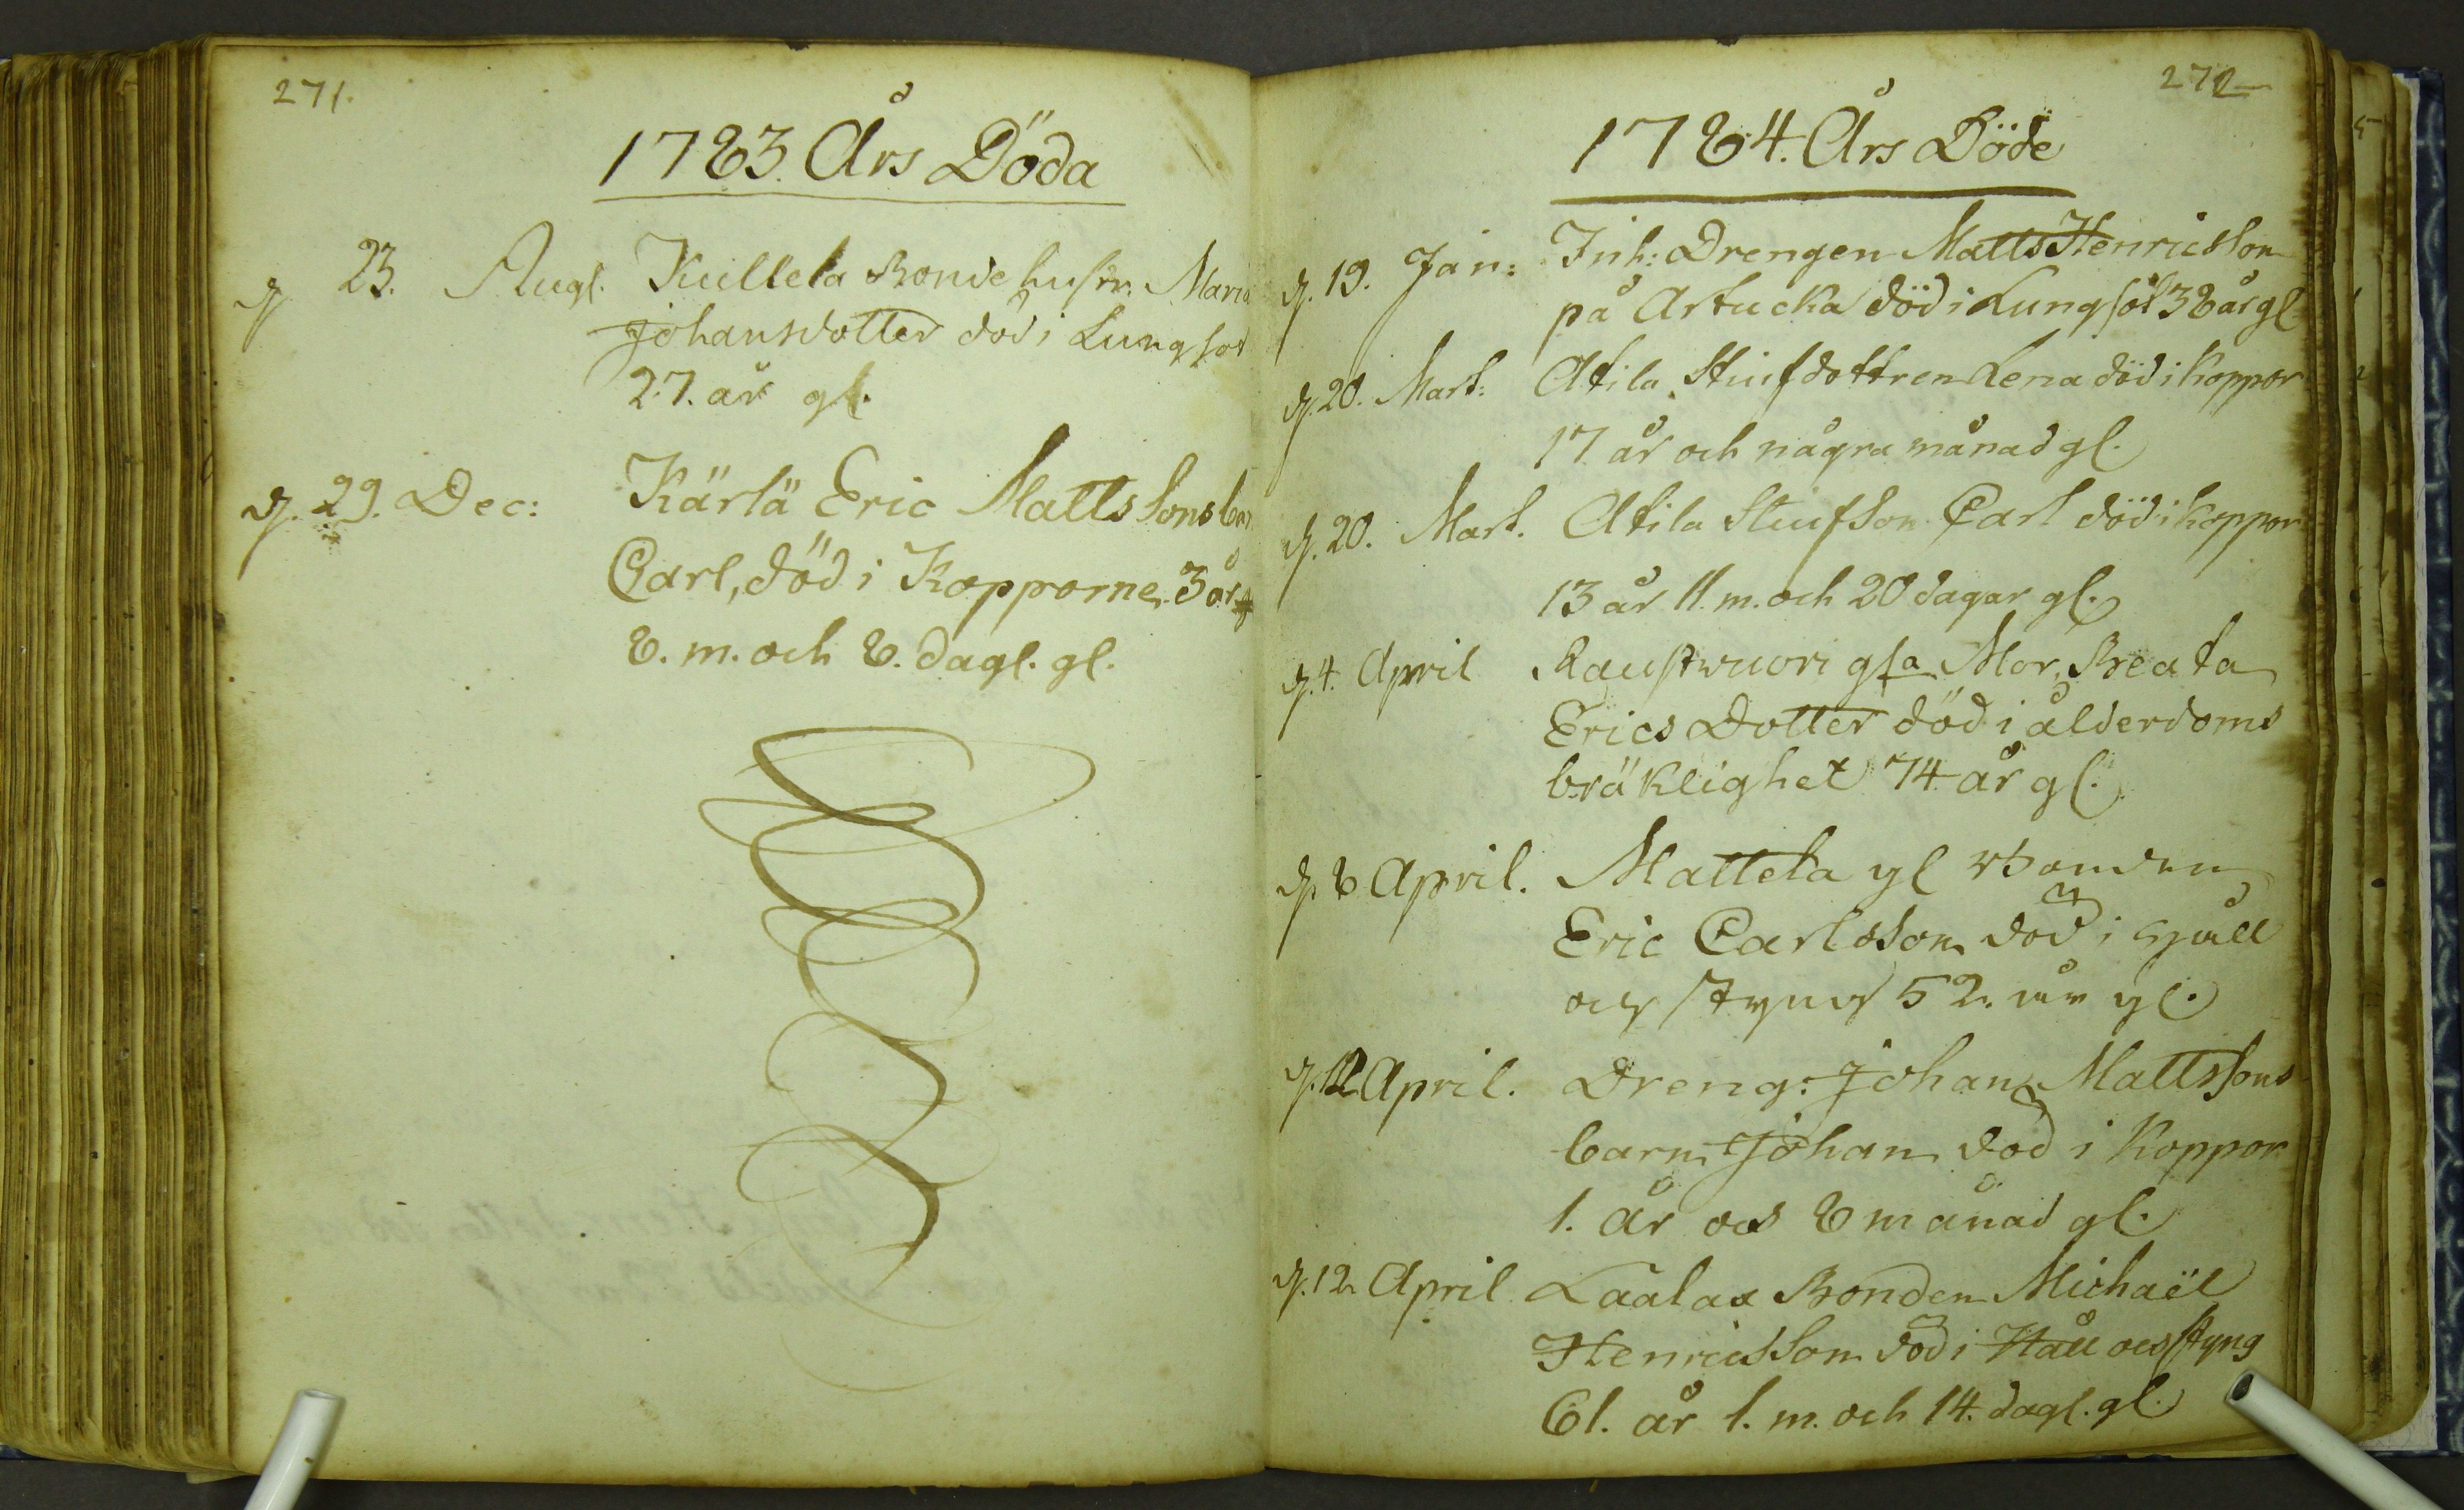 271.
1783. Års Döda
d. 23. Augl. Kullela Bonde hustr. Maria
Johansdotter död i Lungsot
27. år gl.
d. 29. Dec: Kärlä Eric Matts Sons barn
Carl, död i Kopporne. 3 år
8. m. och 8. dagl. gl.
272
1784. Års Döde
d. 19. Jan: Inh: Drengen Matts Henricsson
på Artucka död i Lungsot 38 år gl
d. 20. Mart: Atila Stiufdottren Lena död i Koppor
17 år och några månad gl.
d. 20. Mart. Atila Stiufson Carl död i Koppor
13 år 11. m. och 20 dagar gl.
d. 4. April Raustvuori gla Mor, Beata
Erics Dotter död i ålderdoms
bräklighet 74 år gl.
d. 8 April. Mattela gl Bonden
Eric Carlsson död i Håll
och styng 52. år gl.
d. 12 April. Dreng: Johan Mattssons
barn Johan död i Koppor
1. år och 8 månad gl.
d. 12 April Laalax Bonden Michaël
Henricsson död i Håll och styng
61. år 1. m. och 14. dagl. gl.